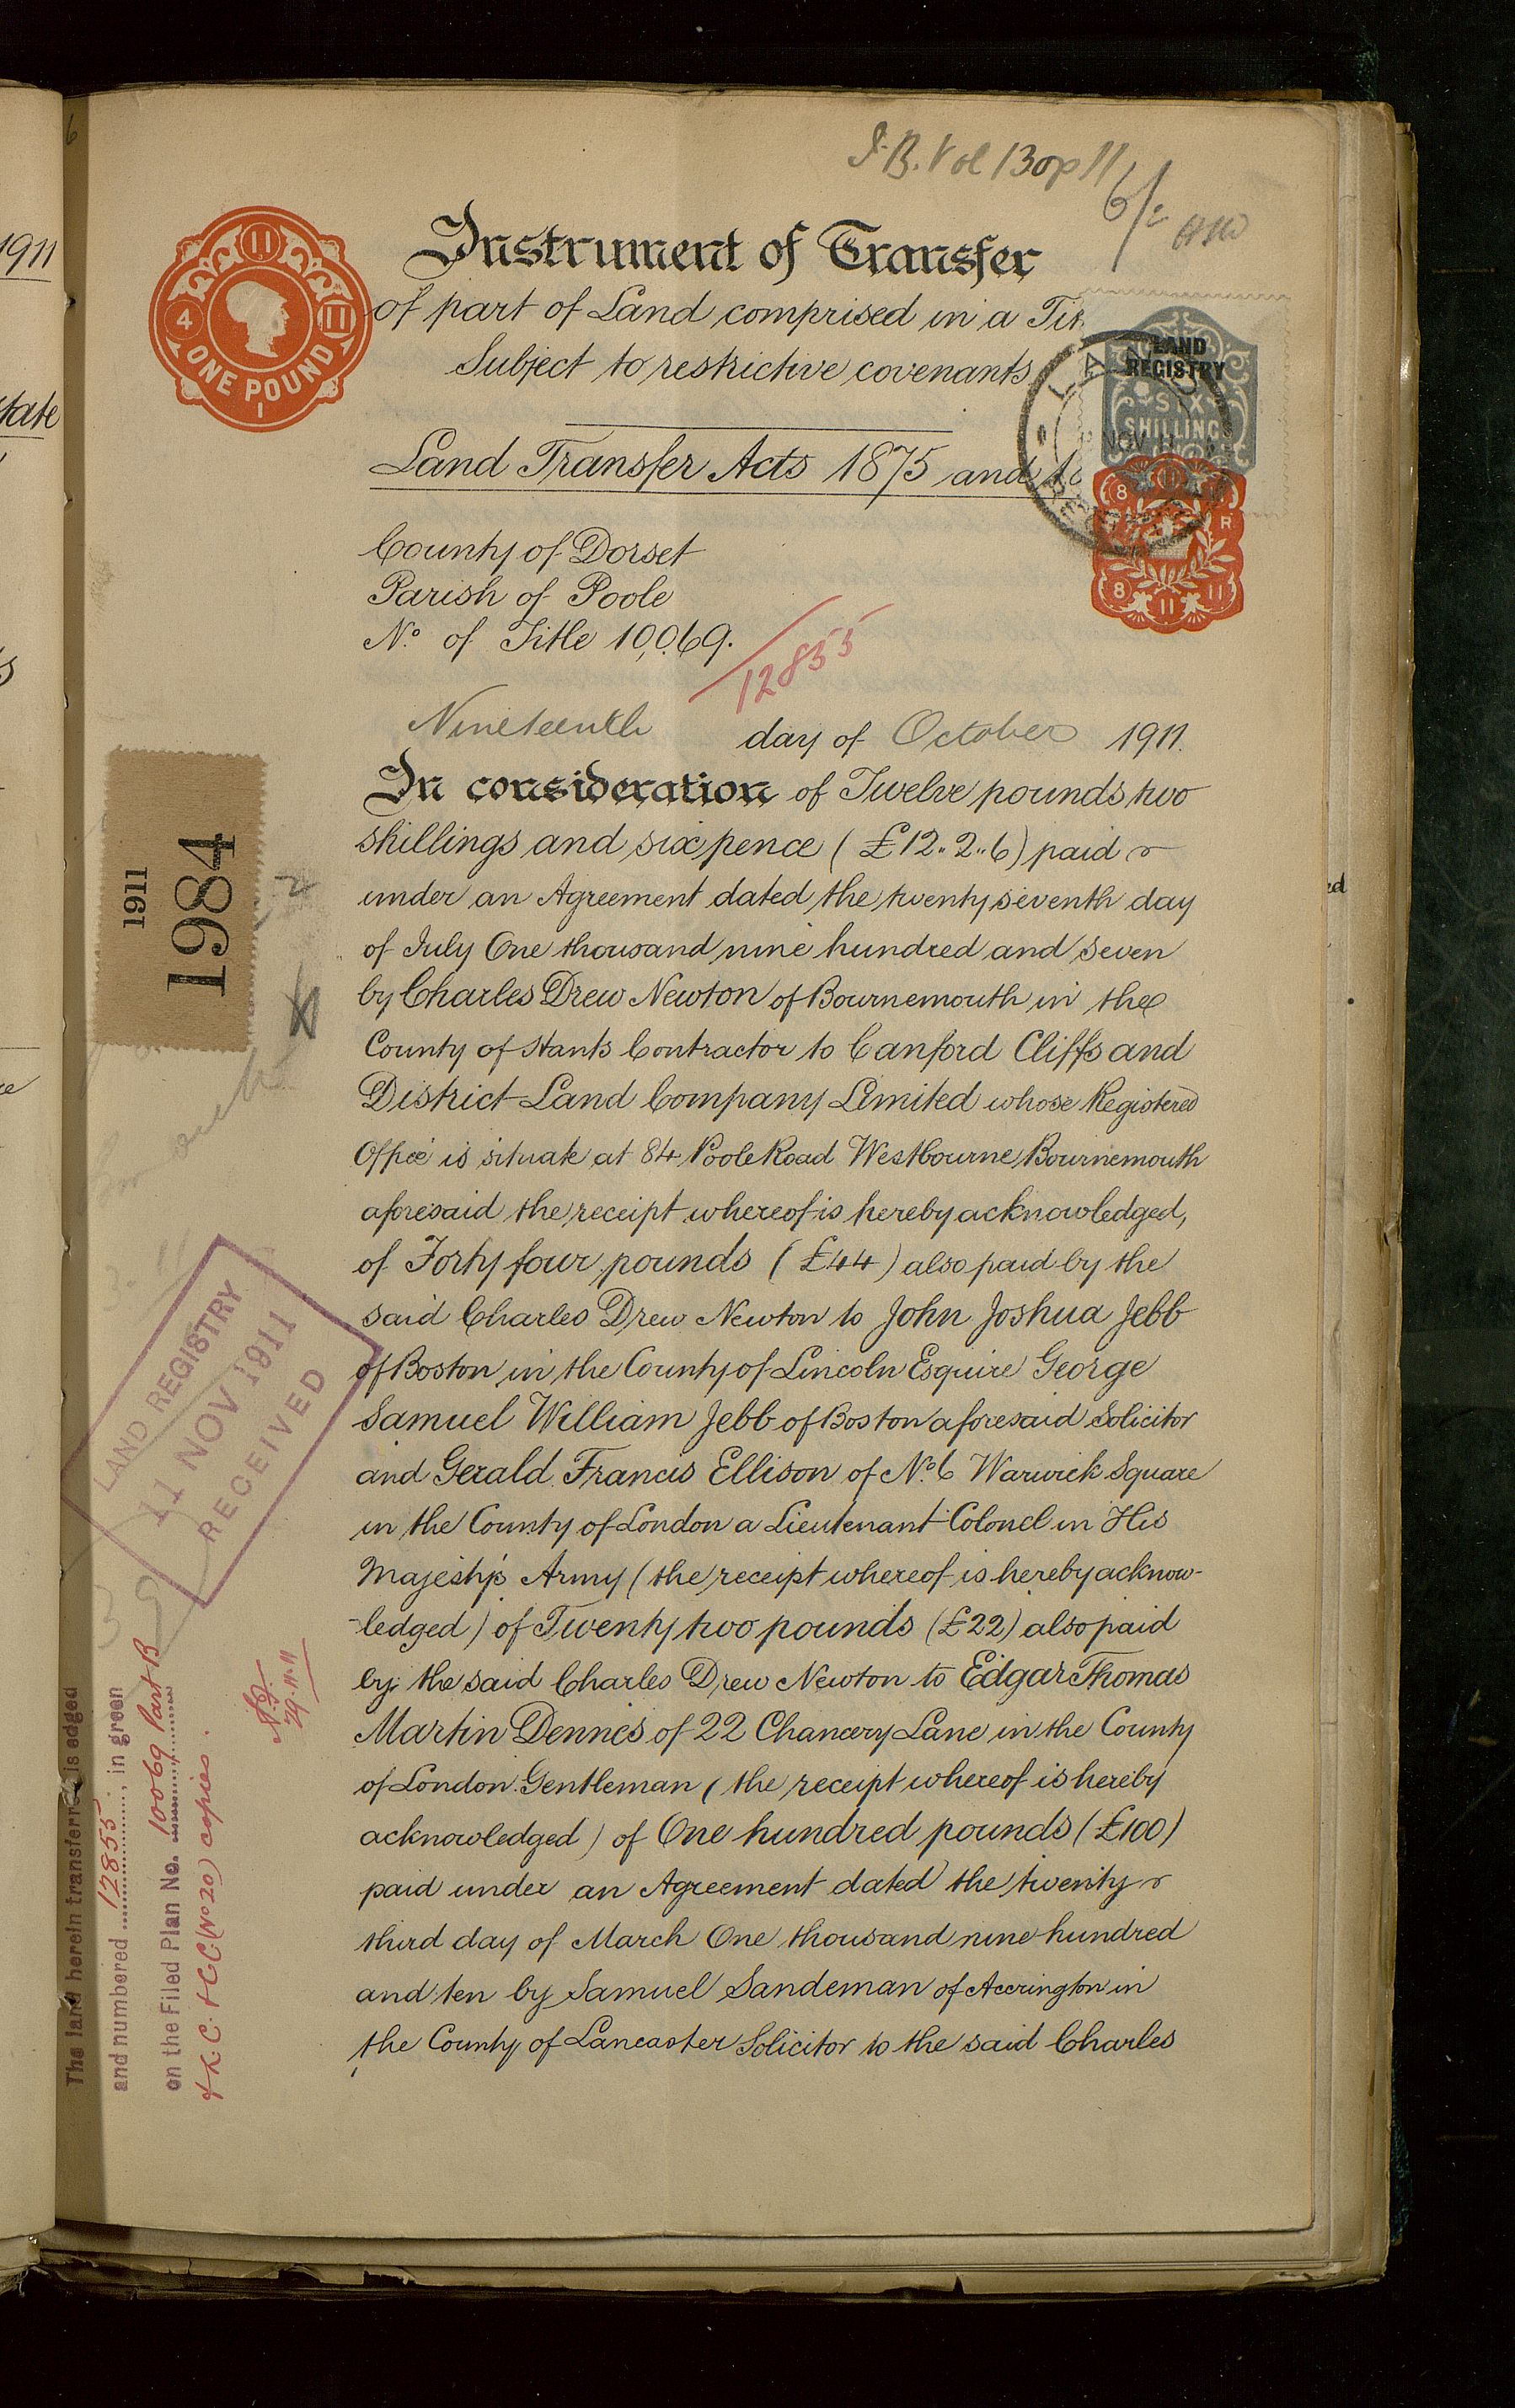 I.B. Vol 130 p 11
6/2
11
4
11
ONE POUND
1
Instrument of Transfer
of part of Land comprised in a
Subject to restrictive covenants
LAND
REGISTRY
SIX
SHILLING
NOV 11
Land Transfer Acts 1875 and
8
R
8
11
11
County of Dorset
Parish of Poole
No. of Title 10,069.
12855
Nineteenth day of October 1911.
In consideration of Twelve pounds two
shillings and sixpence (£12..2..6) paid
under an Agreement dated the twenty seventh day
of July One thousand nine hundred and seven
by Charles Drew Newton of Bournemouth in the
County of Hants Contractor to Canford Cliffs and
District Land Company Limited whose Registered
Office is situate at 84 Poole Road Westbourne Bournemouth
aforesaid the receipt whereof is hereby acknowledged,
of Forty four pounds (£44) also paid by the
said Charles Drew Newton to John Joshua Jebb
of Boston in the County of Lincoln Esquire George
Samuel William Jebb of Boston aforesaid Solicitor
and Gerald Francis Ellison of No. 6 Warwick Square
in the County of London a Lieutenant Colonel in His
Majesty's Army (the receipt whereof is hereby acknow-
-ledged) of Twenty two pounds (£22) also paid
by the said Charles Drew Newton to Edgar Thomas
Martin Dennes of 22 Chancery Lane in the County
of London Gentleman (the receipt whereof is hereby
acknowledged) of One hundred pounds (£100)
paid under an Agreement dated the twenty
third day of March One thousand nine hundred
and ten by Samuel Sandeman of Accrington in
the County of Lancaster Solicitor to the said Charles
1911
1984
LAND REGISTRY
11 NOV 1911
RECEIVED
29.11.11
The land herein transferred is edged
and numbered 12855, in green
on the Filed Plan No. 10069 Part B
& L.C. & C.C (No 20) copies.
1911